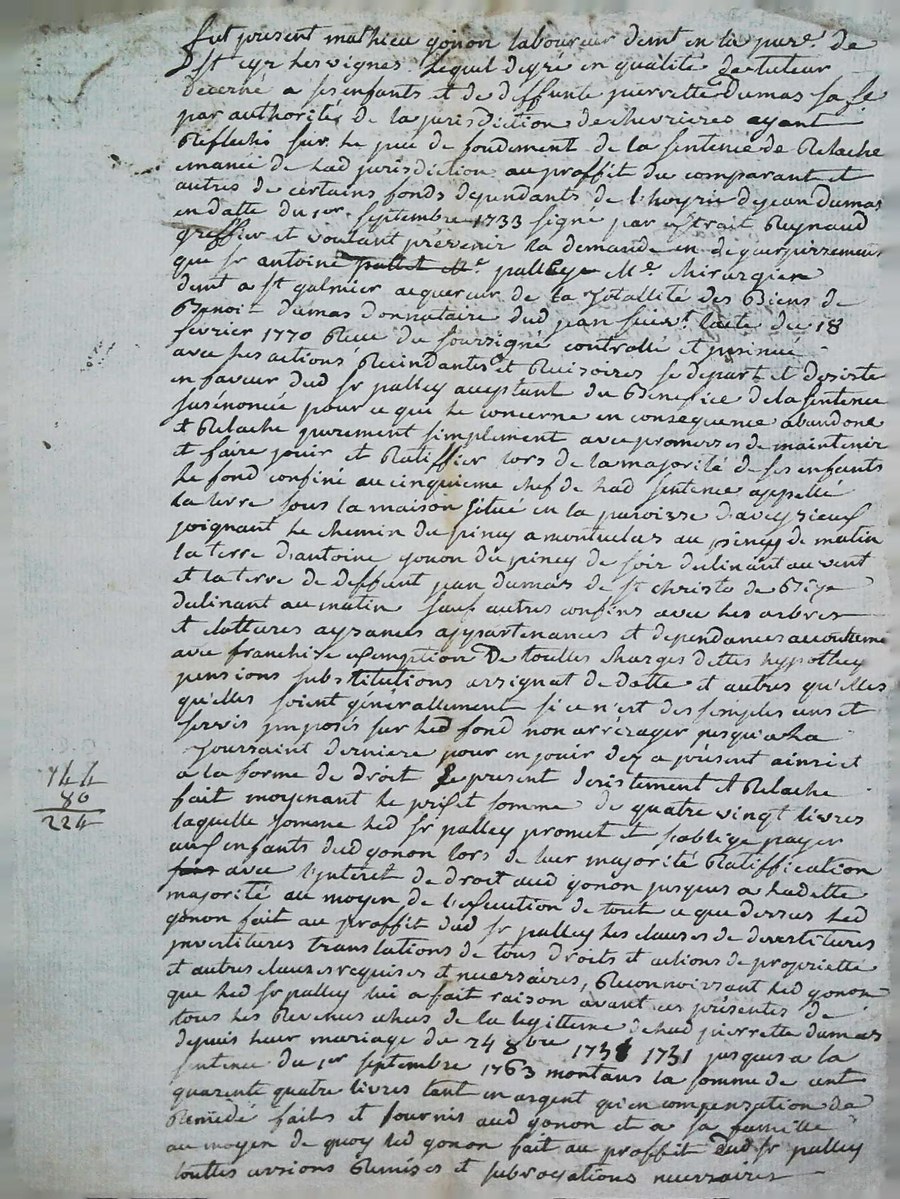 fut present mathieu gonon laboureur demt en la parr.e de
St cyr les vignes lequel degré en qualité de tuteur
décerné a ses enfants et de deffunte pierrette Dumas sa fe
par authorité de la jurisdiction de chevrieres ayant
Reflechi sur le peu de fondement de la sentence de Relache
emanée de lad jurisdiction au proffit du comparant et
autres de certains fonds dependants de l'hoyrie de jean Dumas
en datte du 1er septembre 1733 signé par extrait Reynaud
greffier et voulant prévenir la demande en deguerpissement
que sr antoine palley Me chirurgien
demt a St galmier acquereur de la totallité des Biens de
Benoit Dumas donnataire dud jean suivt l'acte du 18
fevrier 1770 Reçu du soussigné controllé et insinué
avec ses actions Rescindantes et Rescisoires se depart et desiste
en faveur dud sr palley acceptant du Benefice de la sentence
susénoncée pour ce qui le concerne en consequence abandonne
et Relache purement simplement avec promesses de maintenir
et faire jouir et Ratiffier lors de la majorité de ses enfants
le fond confiné au cinquieme chef de lad sentence appellé
la terre sous la maison située en la paroisse d'aveyzieux
joignant le chemin du piney a montuclas au piney de matin
la terre d'antoine gonon du piney de soir declinant au vent
et la terre de deffunt jean dumas de St christo de Bize
declinant au matin sauf autres confins avec les arbres
et clottures aysances appartenances et dependances accoutumé
avec franchise exemption De touttes charges dettes hypotheq
pensions substitutions assignat de datte et autres qu'elles
qu'elles soient générallement si ce n'est des simples cens et
servis imposés sur led fond non arrérager jusqu'a la
Toussaint derniere pour en jouir dez a présent ainsi et
a la forme de droit Le present desistement et Relache
fait moyenant le prix et somme de quatre vingt livres
laquelle somme led sr palley promet et s'oblige payer
aux enfants dud gonon lors de leur majorité Ratiffication
avec l'interet de droit aud gonon jusques a ladette
majorité au moyen de l'execution de tout ce que dessus led
gonon fait au proffit dud sr palley les clauses de devestitures
investitures translations de tous droits et actions de propriette
et autres clauses requises et necessaires, Reconnoissant led gonon
que led sr palley lui a fait raison avant ces présentes de
tous les Revenus échus de la legittime de lad pierrette dumas
depuis leur mariage du 24 8bre 1731 jusques a la
sentence du 1er septembre 1763 montans la somme de cent
quarente quatre livres tant en argent qu'en compensation de
Remede faits et fournis aud gonon et a sa famille
au moyen de quoy led gonon fait au proffit Dud sr palley
touttes cessions Remises et subrogations necessaires
144
80
224